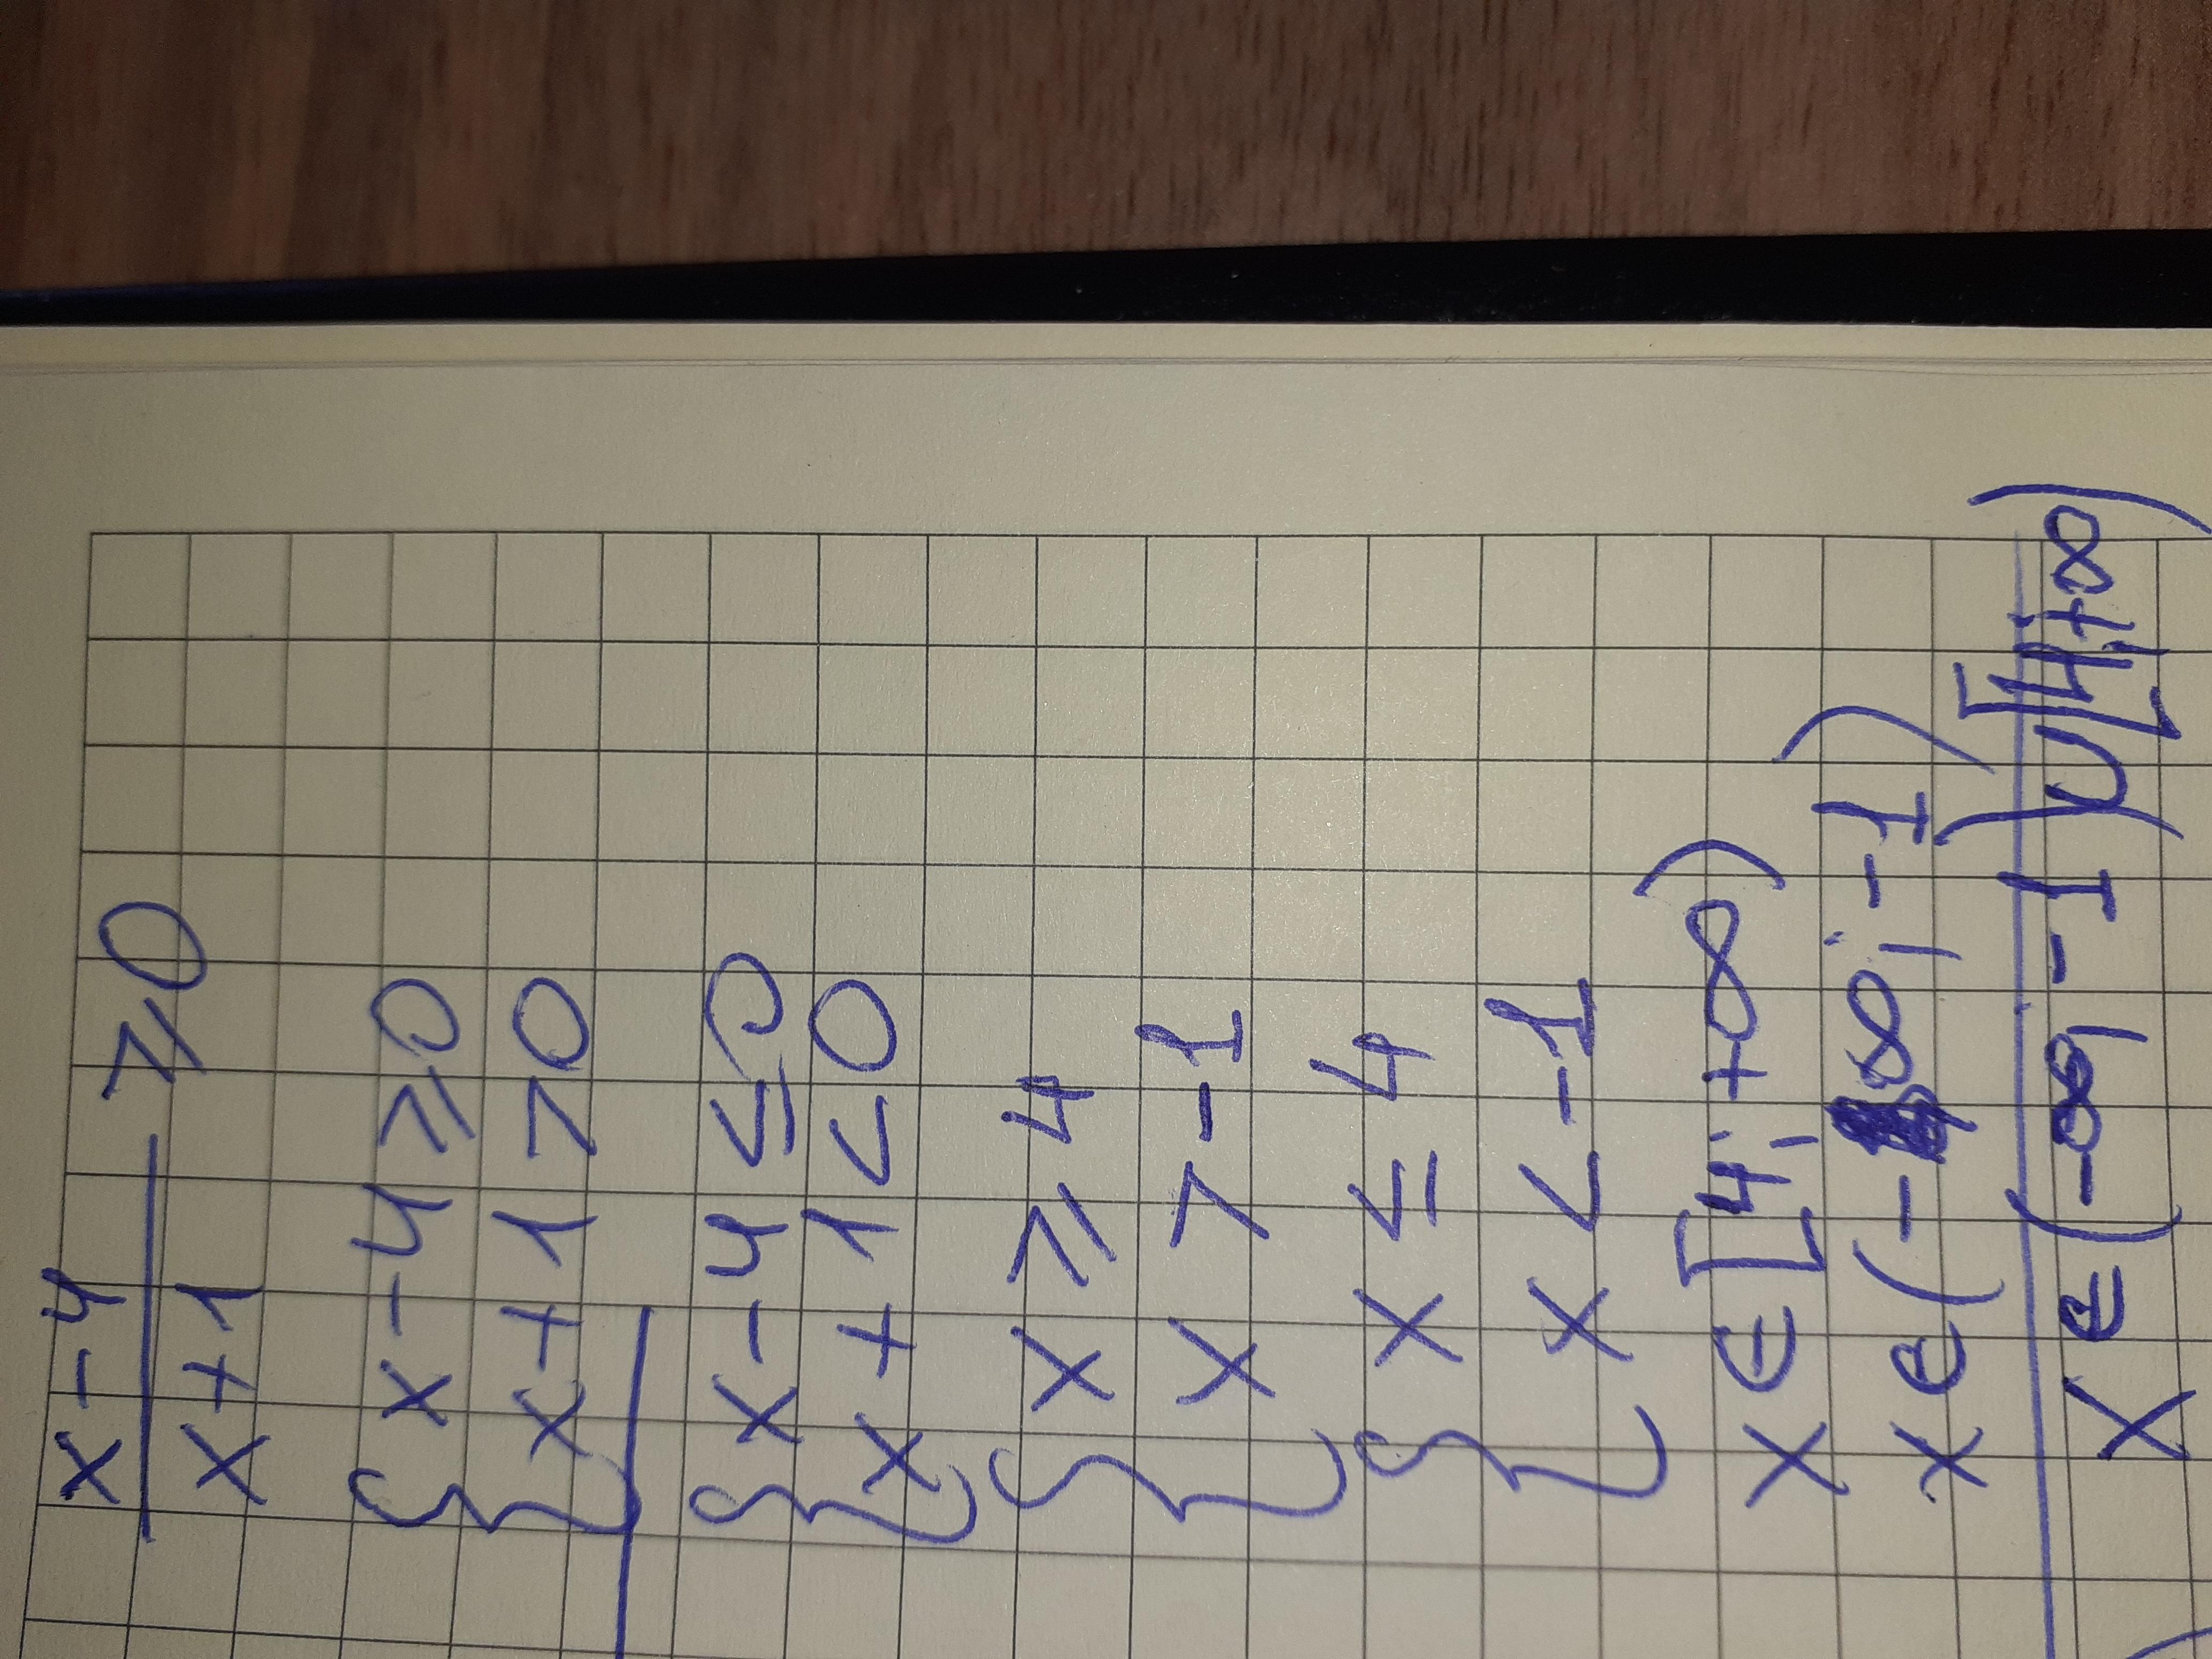 x-4
x+1 ≥0
{x-4≥0
x+1>0
{x-4≤0
x+1<0
{x≥4
x>-1
{x≤4
x<-1
x∈[4;+∞)
x∈(-∞;-1)
x∈(-∞;-1)∪[4;+∞)